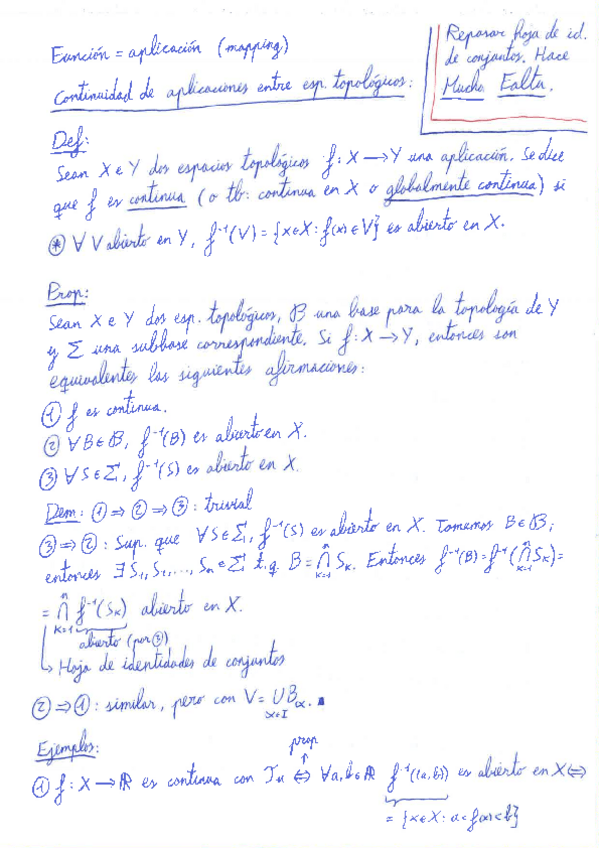 Función = aplicación (mapping)
Repasar hoja de id.
de conjuntos. Hace
Mucha Falta.
Continuidad de aplicaciones entre esp. topológicos:
Def:
Sean X e Y dos espacios topológicos f: X → Y una aplicación. Se dice
que f es continua (o tb: continua en X o globalmente continua) si
⊛ ∀ V abierto en Y, f⁻¹(V) = {x∈X: f(x) ∈ V} es abierto en X.
Prop:
Sean X e Y dos esp. topológicos, B una base para la topología de Y
y Σ una subbase correspondiente. Si f: X → Y, entonces son
equivalentes las siguientes afirmaciones:
① f es continua.
② ∀B∈B, f⁻¹(B) es abierto en X.
③ ∀S∈Σ, f⁻¹(S) es abierto en X.
Dem: ① ⇒ ② ⇒ ③: trivial
③ ⇒ ②: Sup. que ∀S∈Σ, f⁻¹(S) es abierto en X. Tomamos B∈B;
entonces ∃ S₁, S₂, ..., Sₙ ∈ Σ t.q. B = ⋂ₖ₌₁ⁿ Sₖ. Entonces f⁻¹(B) = f⁻¹(⋂ₖ₌₁ⁿ Sₖ) =
= ⋂ₖ₌₁ⁿ f⁻¹(Sₖ) abierto en X.
abierto (por ③)
↳ Hoja de identidades de conjuntos
② ⇒ ①: similar, pero con V = ⋃ Bα. ∎
α∈I
Ejemplos:
prop
↑
① f: X → ℝ es continua con Tu ⇔ ∀a,b∈ℝ f⁻¹((a,b)) es abierto en X ⇔
= {x∈X: a < f(x) < b}